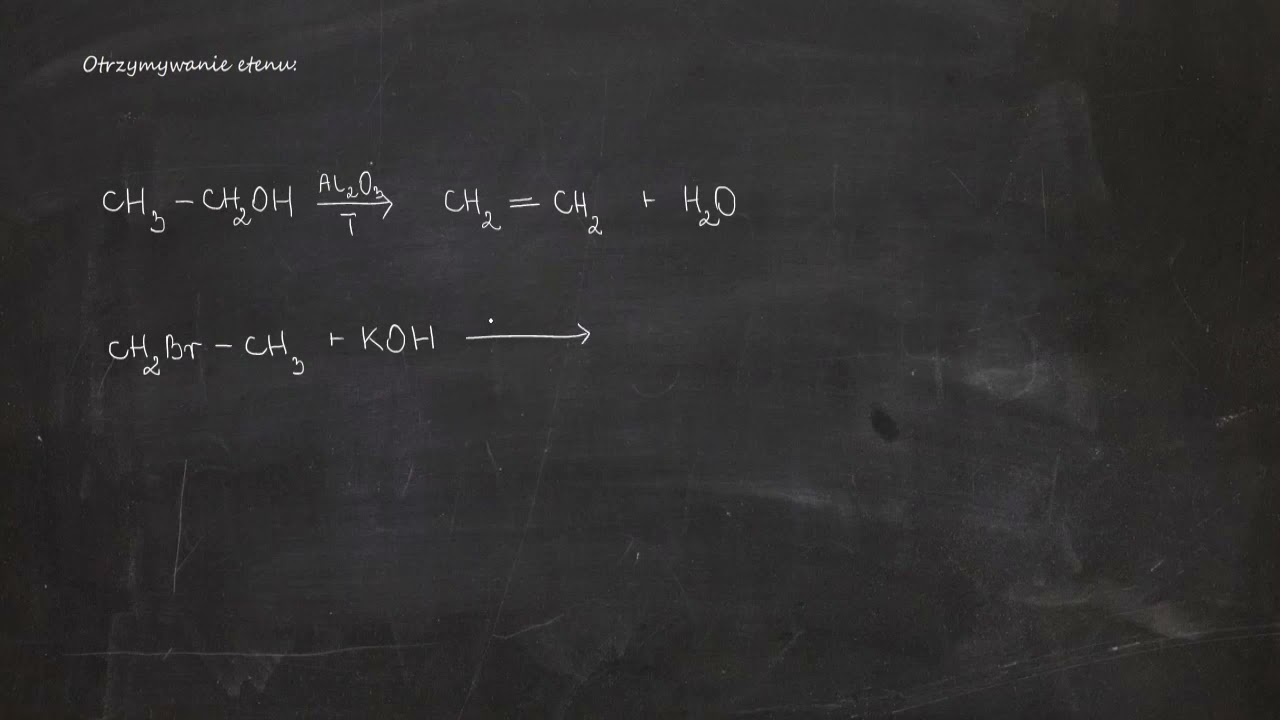 Otrzymywanie etenu:
CH₃ – CH₂OH Al₂O₃ / T → CH₂ = CH₂ + H₂O
CH₂Br – CH₃ + KOH →